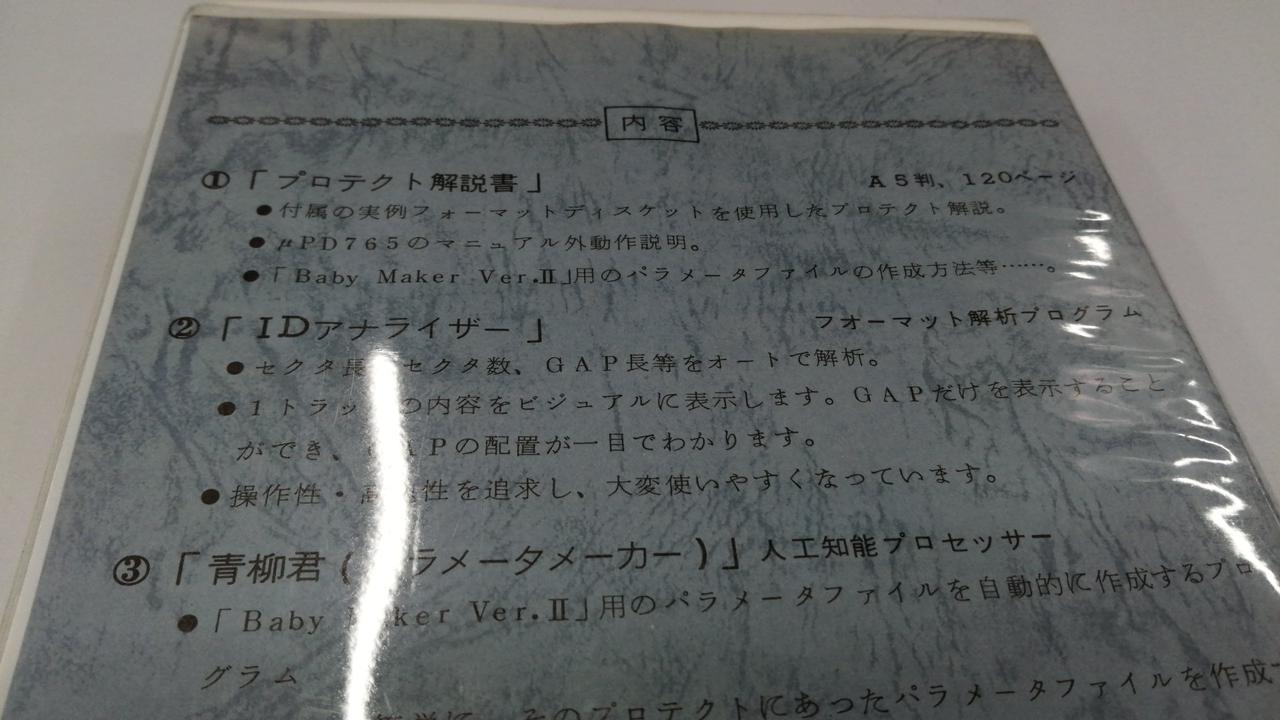 内容
①「プロテクト解説書」 A5判、120ページ
●付属の実例フォーマットディスケットを使用したプロテクト解説。
●μPD765のマニュアル外動作説明。
●「Baby Maker Ver.Ⅱ」用のパラメータファイルの作成方法等……。
②「IDアナライザー」 フォーマット解析プログラム
●セクタ長 セクタ数、GAP長等をオートで解析。
●1トラッ の内容をビジュアルに表示します。GAPだけを表示すること
ができ、 APの配置が一目でわかります。
●操作性・ 性を追求し、大変使いやすくなっています。
③「青柳君( ラメータメーカー)」人工知能プロセッサー
●「Baby Ver.Ⅱ」用のパラメータファイルを自動的に作成するプロ
グラム
そのプロテクトにあったパラメータファイルを作成